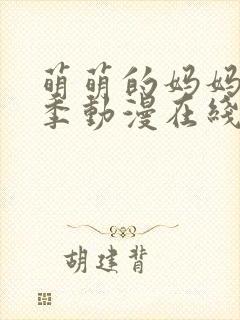 萌萌的妈妈
季動漫在綫
胡建背